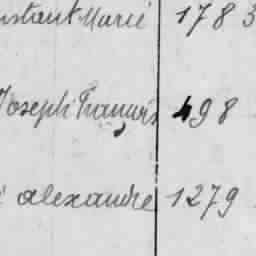 nstant Marie 1783
Joseph François 498
alexandre 1279